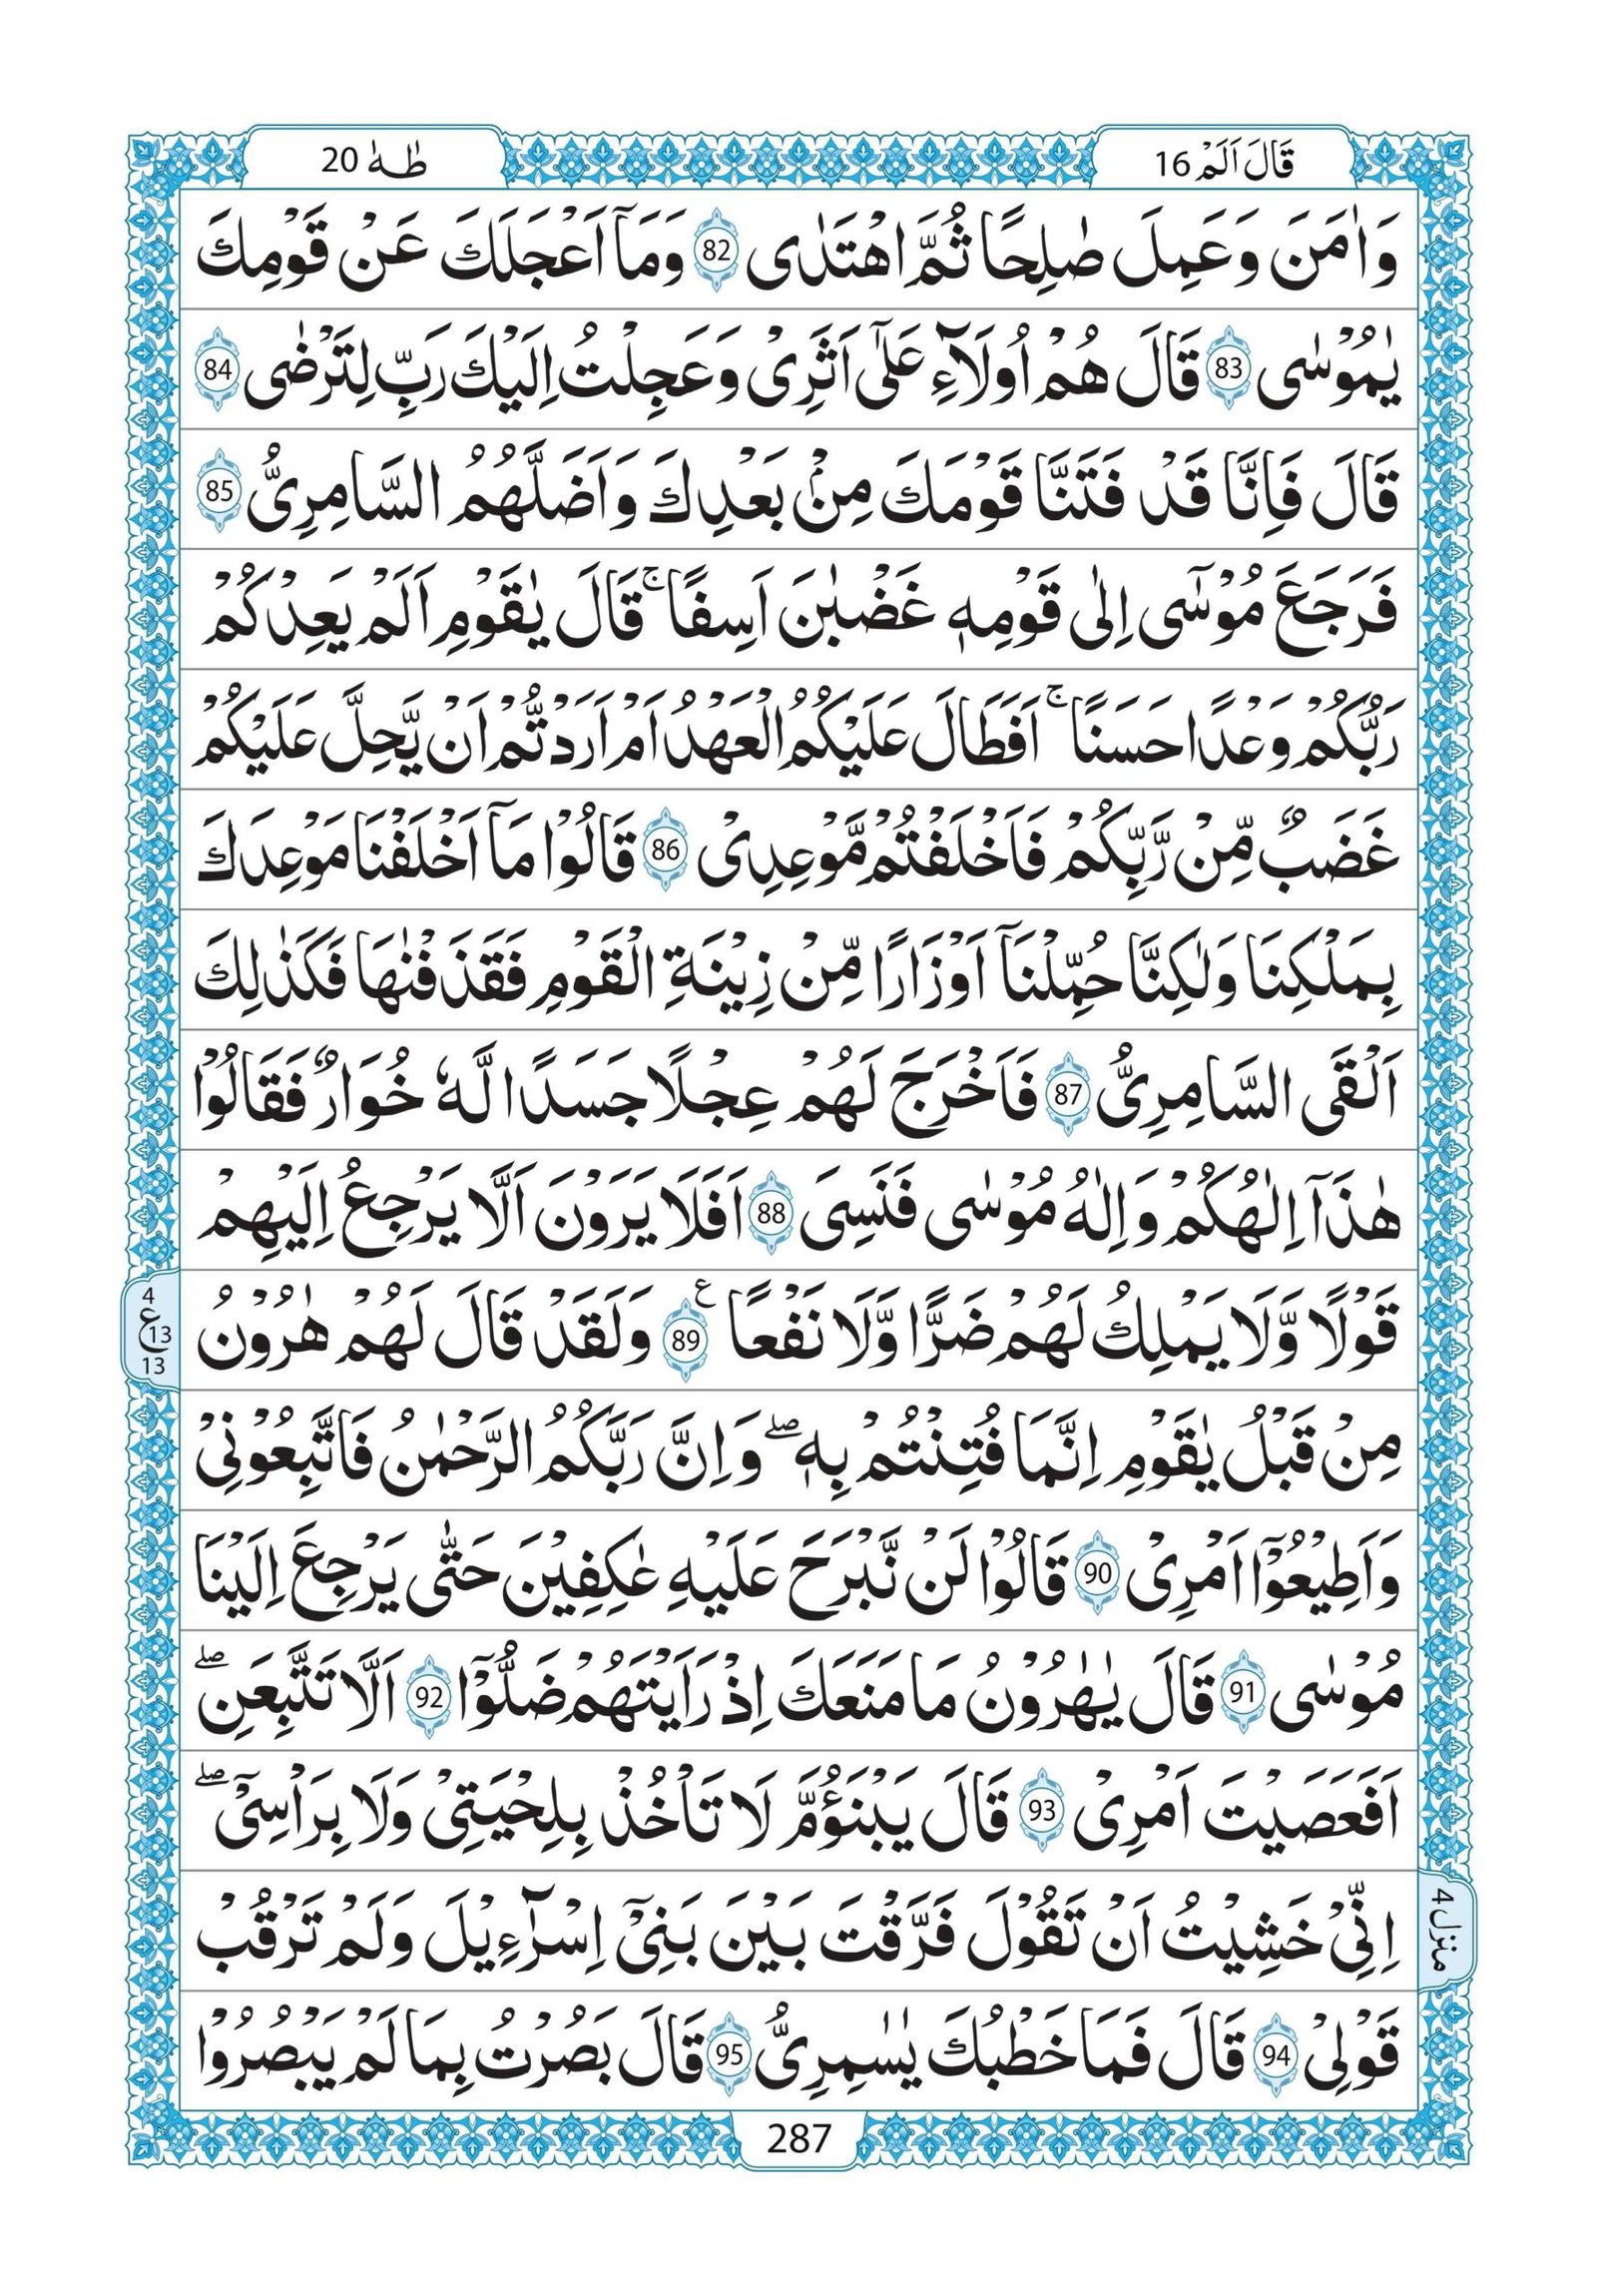 قَالَ اَلَمْ 16
طٰهٰ 20
وَاٰمَنَ وَعَمِلَ صٰلِحًا ثُمَّ اهْتَدٰى 82 وَمَاۤ اَعْجَلَكَ عَنْ قَوْمِكَ
يٰمُوْسٰى 83 قَالَ هُمْ اُولَآءِ عَلٰۤى اَثَرِىْ وَعَجِلْتُ اِلَيْكَ رَبِّ لِتَرْضٰى 84
قَالَ فَاِنَّا قَدْ فَتَنَّا قَوْمَكَ مِنْۢ بَعْدِكَ وَاَضَلَّهُمُ السَّامِرِىُّ 85
فَرَجَعَ مُوْسٰۤى اِلٰى قَوْمِهٖ غَضْبٰنَ اَسِفًا ۚ قَالَ يٰقَوْمِ اَلَمْ يَعِدْكُمْ
رَبُّكُمْ وَعْدًا حَسَنًا ۚ اَفَطَالَ عَلَيْكُمُ الْعَهْدُ اَمْ اَرَدْتُّمْ اَنْ يَّحِلَّ عَلَيْكُمْ
غَضَبٌ مِّنْ رَّبِّكُمْ فَاَخْلَفْتُمْ مَّوْعِدِىْ 86 قَالُوْا مَاۤ اَخْلَفْنَا مَوْعِدَكَ
بِمَلْكِنَا وَلٰكِنَّا حُمِّلْنَاۤ اَوْزَارًا مِّنْ زِيْنَةِ الْقَوْمِ فَقَذَفْنٰهَا فَكَذٰلِكَ
اَلْقَى السَّامِرِىُّ 87 فَاَخْرَجَ لَهُمْ عِجْلًا جَسَدًا لَّهٗ خُوَارٌ فَقَالُوْا
هٰذَاۤ اِلٰهُكُمْ وَاِلٰهُ مُوْسٰى فَنَسِىَ 88 اَفَلَا يَرَوْنَ اَلَّا يَرْجِعُ اِلَيْهِمْ
قَوْلًا وَّلَا يَمْلِكُ لَهُمْ ضَرًّا وَّلَا نَفْعًا 89 ع وَلَقَدْ قَالَ لَهُمْ هٰرُوْنُ
4
ع 13
13
مِنْ قَبْلُ يٰقَوْمِ اِنَّمَا فُتِنْتُمْ بِهٖ ۖ وَاِنَّ رَبَّكُمُ الرَّحْمٰنُ فَاتَّبِعُوْنِىْ
وَاَطِيْعُوْۤا اَمْرِىْ 90 قَالُوْا لَنْ نَّبْرَحَ عَلَيْهِ عٰكِفِيْنَ حَتّٰى يَرْجِعَ اِلَيْنَا
مُوْسٰى 91 قَالَ يٰهٰرُوْنُ مَا مَنَعَكَ اِذْ رَاَيْتَهُمْ ضَلُّوْۤا 92 اَلَّا تَتَّبِعَنِ ۖ
اَفَعَصَيْتَ اَمْرِىْ 93 قَالَ يَبْنَؤُمَّ لَا تَاْخُذْ بِلِحْيَتِىْ وَلَا بِرَاْسِىْۤ ۖ
اِنِّىْ خَشِيْتُ اَنْ تَقُوْلَ فَرَّقْتَ بَيْنَ بَنِىْۤ اِسْرَآءِيْلَ وَلَمْ تَرْقُبْ
منزل 4
قَوْلِىْ 94 قَالَ فَمَا خَطْبُكَ يٰسٰمِرِىُّ 95 قَالَ بَصُرْتُ بِمَا لَمْ يَبْصُرُوْا
287